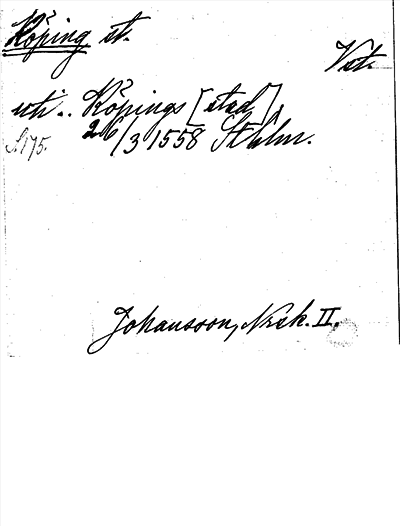 Köping st.
Vst.
uti.. Köpings [stad],
S.175.
26/3 1558 Sthlm.
Johansson, Nrsk. II.